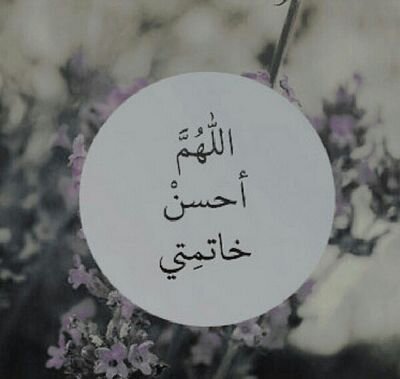 اللّٰهُمَّ
أحسنْ
خاتمِتي